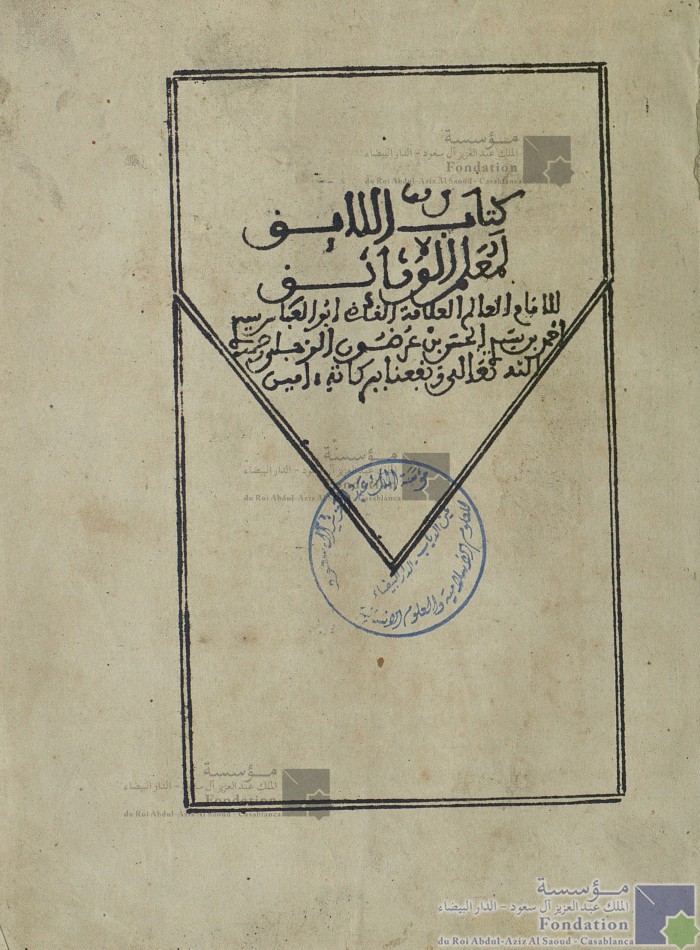 مؤسسة
الملك عبد العزيز آل سعود - الدار البيضاء
Fondation
du Roi Abdul-Aziz Al Saoud - Casablanca
كتاب اللايق
لمعلم الوثائق
للامام العالم العلامة ابو العباس سيدي
احمد بن سيدي الحسن بن عرضون الزجلي رحمه
الله تعالى ونفعنا ببركاته ءامين
مؤسسة
الملك عبد العزيز آل سعود - الدار البيضاء
du Roi Abdul-Aziz Al Saoud - Casablanca
مؤسسة الملك عبد العزيز آل سعود
للعلوم الاسلامية والعلوم الانسانية
الدار البيضاء
مؤسسة
الملك عبد العزيز آل سعود - الدار البيضاء
Fondation
du Roi Abdul-Aziz Al Saoud - Casablanca
مؤسسة
الملك عبد العزيز آل سعود - الدار البيضاء
Fondation
du Roi Abdul-Aziz Al Saoud - Casablanca